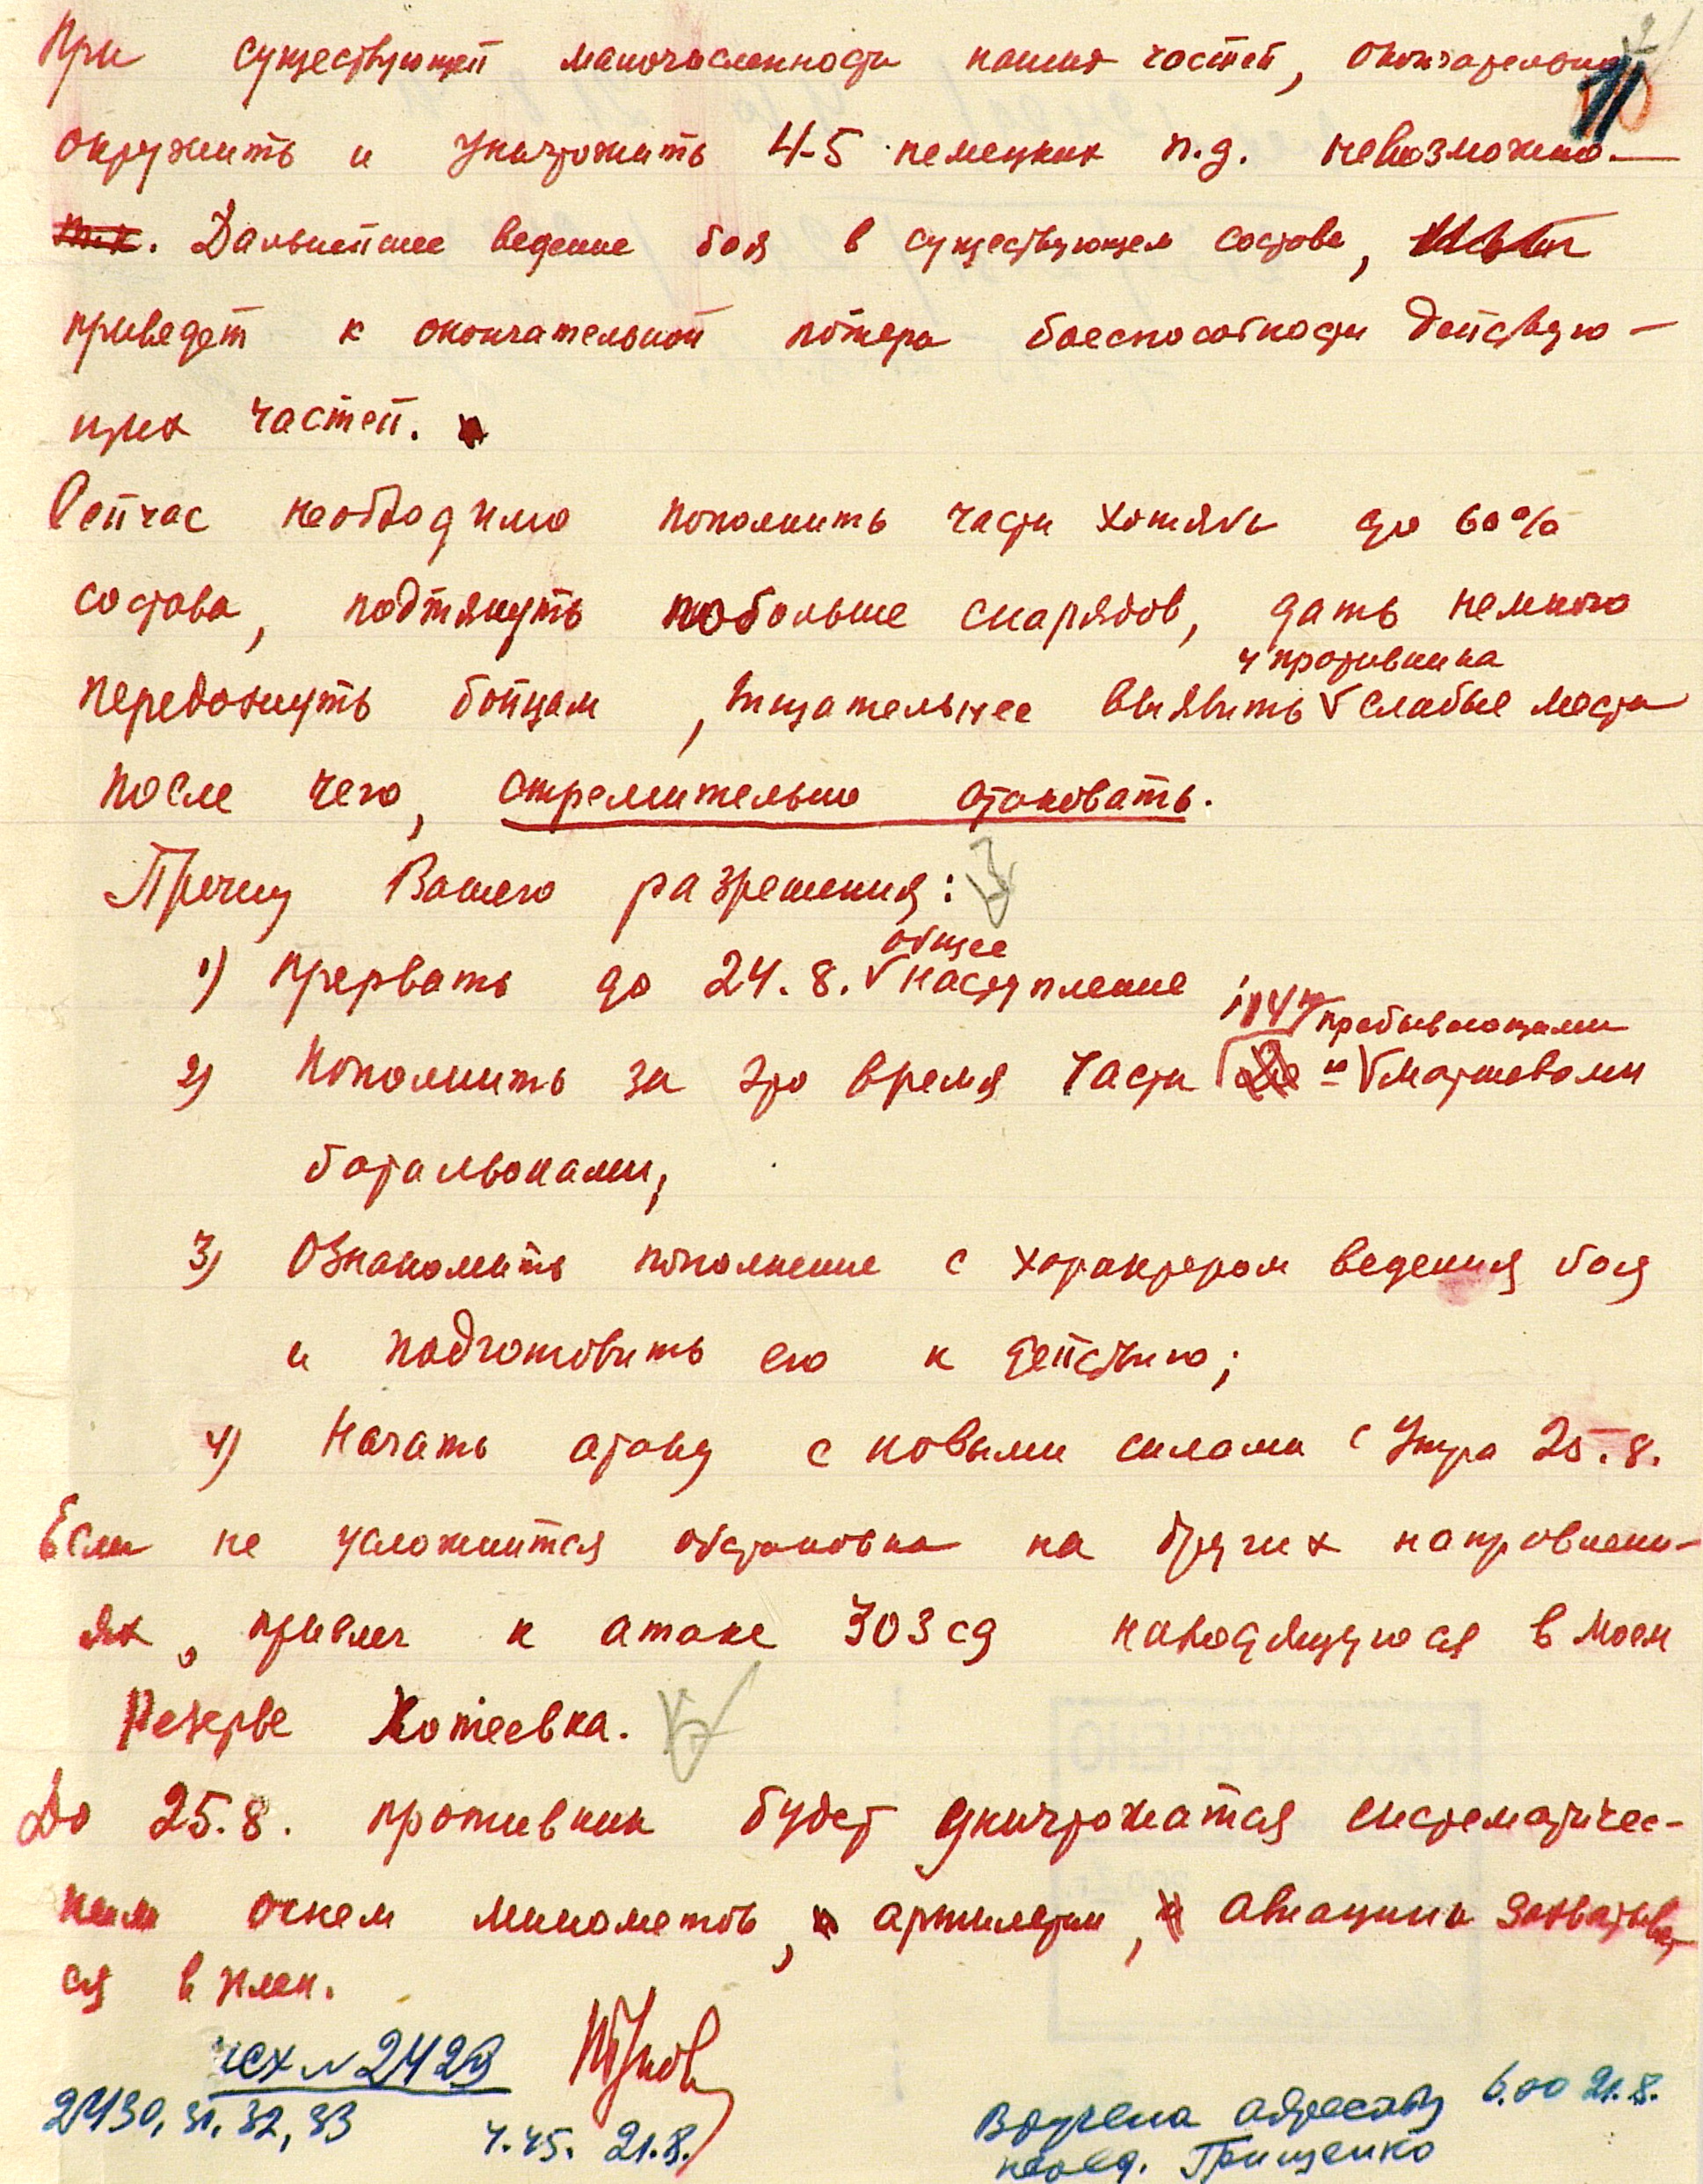 При существующей малочисленности наших частей, окончательно
окружить и уничтожить 4-5 немецких п.д. невозможно.—
т.к. Дальнейшее ведение боя в существующем составе,
приведет к окончательной потере боеспособности действую-
щих частей.
Сейчас необходимо пополнить части хотябы до 60%
состава, подтянуть побольше снарядов, дать немного
у противника
передохнуть бойцам, тщательнее выявить V слабые места
после чего, стремительно атаковать.
Прошу Вашего разрешения:
общее
1) прервать до 24.8. V наступление
прибывающими
2) Пополнить за это время части V маршевами
батальонами,
3) Ознакомить пополнение с характером ведения боя
и подготовить его к действию;
4) Начать атаку с новыми силами с Утра 25.8.
Если не усложнится обстановка на других направлени-
ях, привлеч к атаке 303 сд находящуюся в моем
Резерве Котеевка.
До 25.8. противник будет уничтожатся систематичес-
ким огнем минометов, артилерии, авиации захватыват
ся в плен.
исх № 2429
Жуков
2430, 31, 32, 33
4.45. 21.8.
Вручена адресату 6.00 21.8.
Грищенко